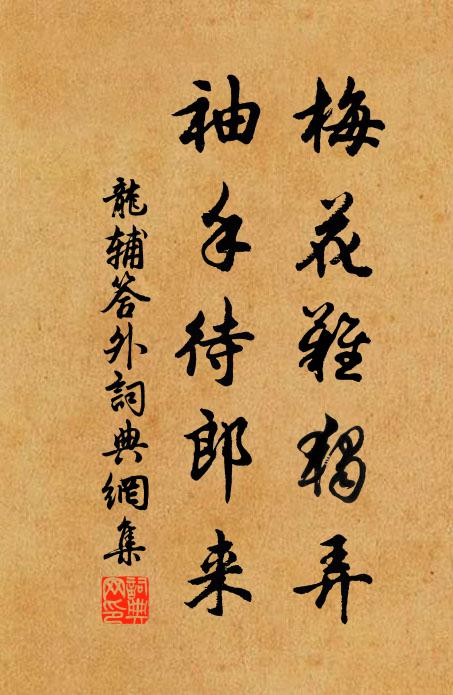 梅花難獨弄
袖手待郎来
龍辅答外詞典網集
詞典网印